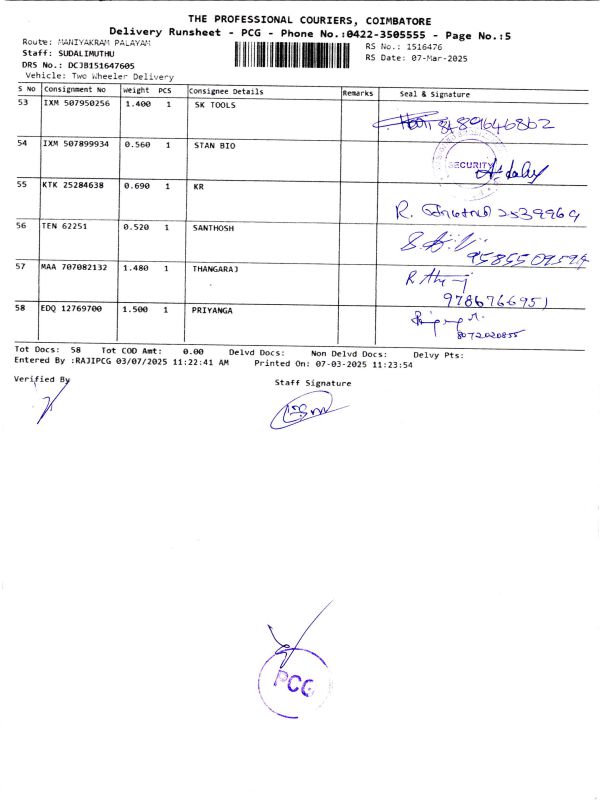 THE PROFESSIONAL COURIERS, COIMBATORE
Delivery Runsheet - PCG - Phone No.:0422-3505555 - Page No.:5
Route: MANIYAKRAM PALAYAM
RS No.: 1516476
Staff: SUDALIMUTHU
RS Date: 07-Mar-2025
DRS No.: DCJB151647605
Vehicle: Two Wheeler Delivery
S No Consignment No Weight PCS Consignee Details Remarks Seal & Signature
53 IXM 507950256 1.400 1 SK TOOLS
8489646862
54 IXM 507899934 0.560 1 STAN BIO
SECURITY
55 KTK 25284638 0.690 1 KR
R. 2539969
56 TEN 62251 0.520 1 SANTHOSH
9585509594
57 MAA 707082132 1.480 1 THANGARAJ
9786766951
58 EDQ 12769700 1.500 1 PRIYANGA
8072020855
Tot Docs: 58 Tot COD Amt: 0.00 Delvd Docs: Non Delvd Docs: Delvy Pts:
Entered By :RAJIPCG 03/07/2025 11:22:41 AM Printed On: 07-03-2025 11:23:54
Verified By
Staff Signature
PCG